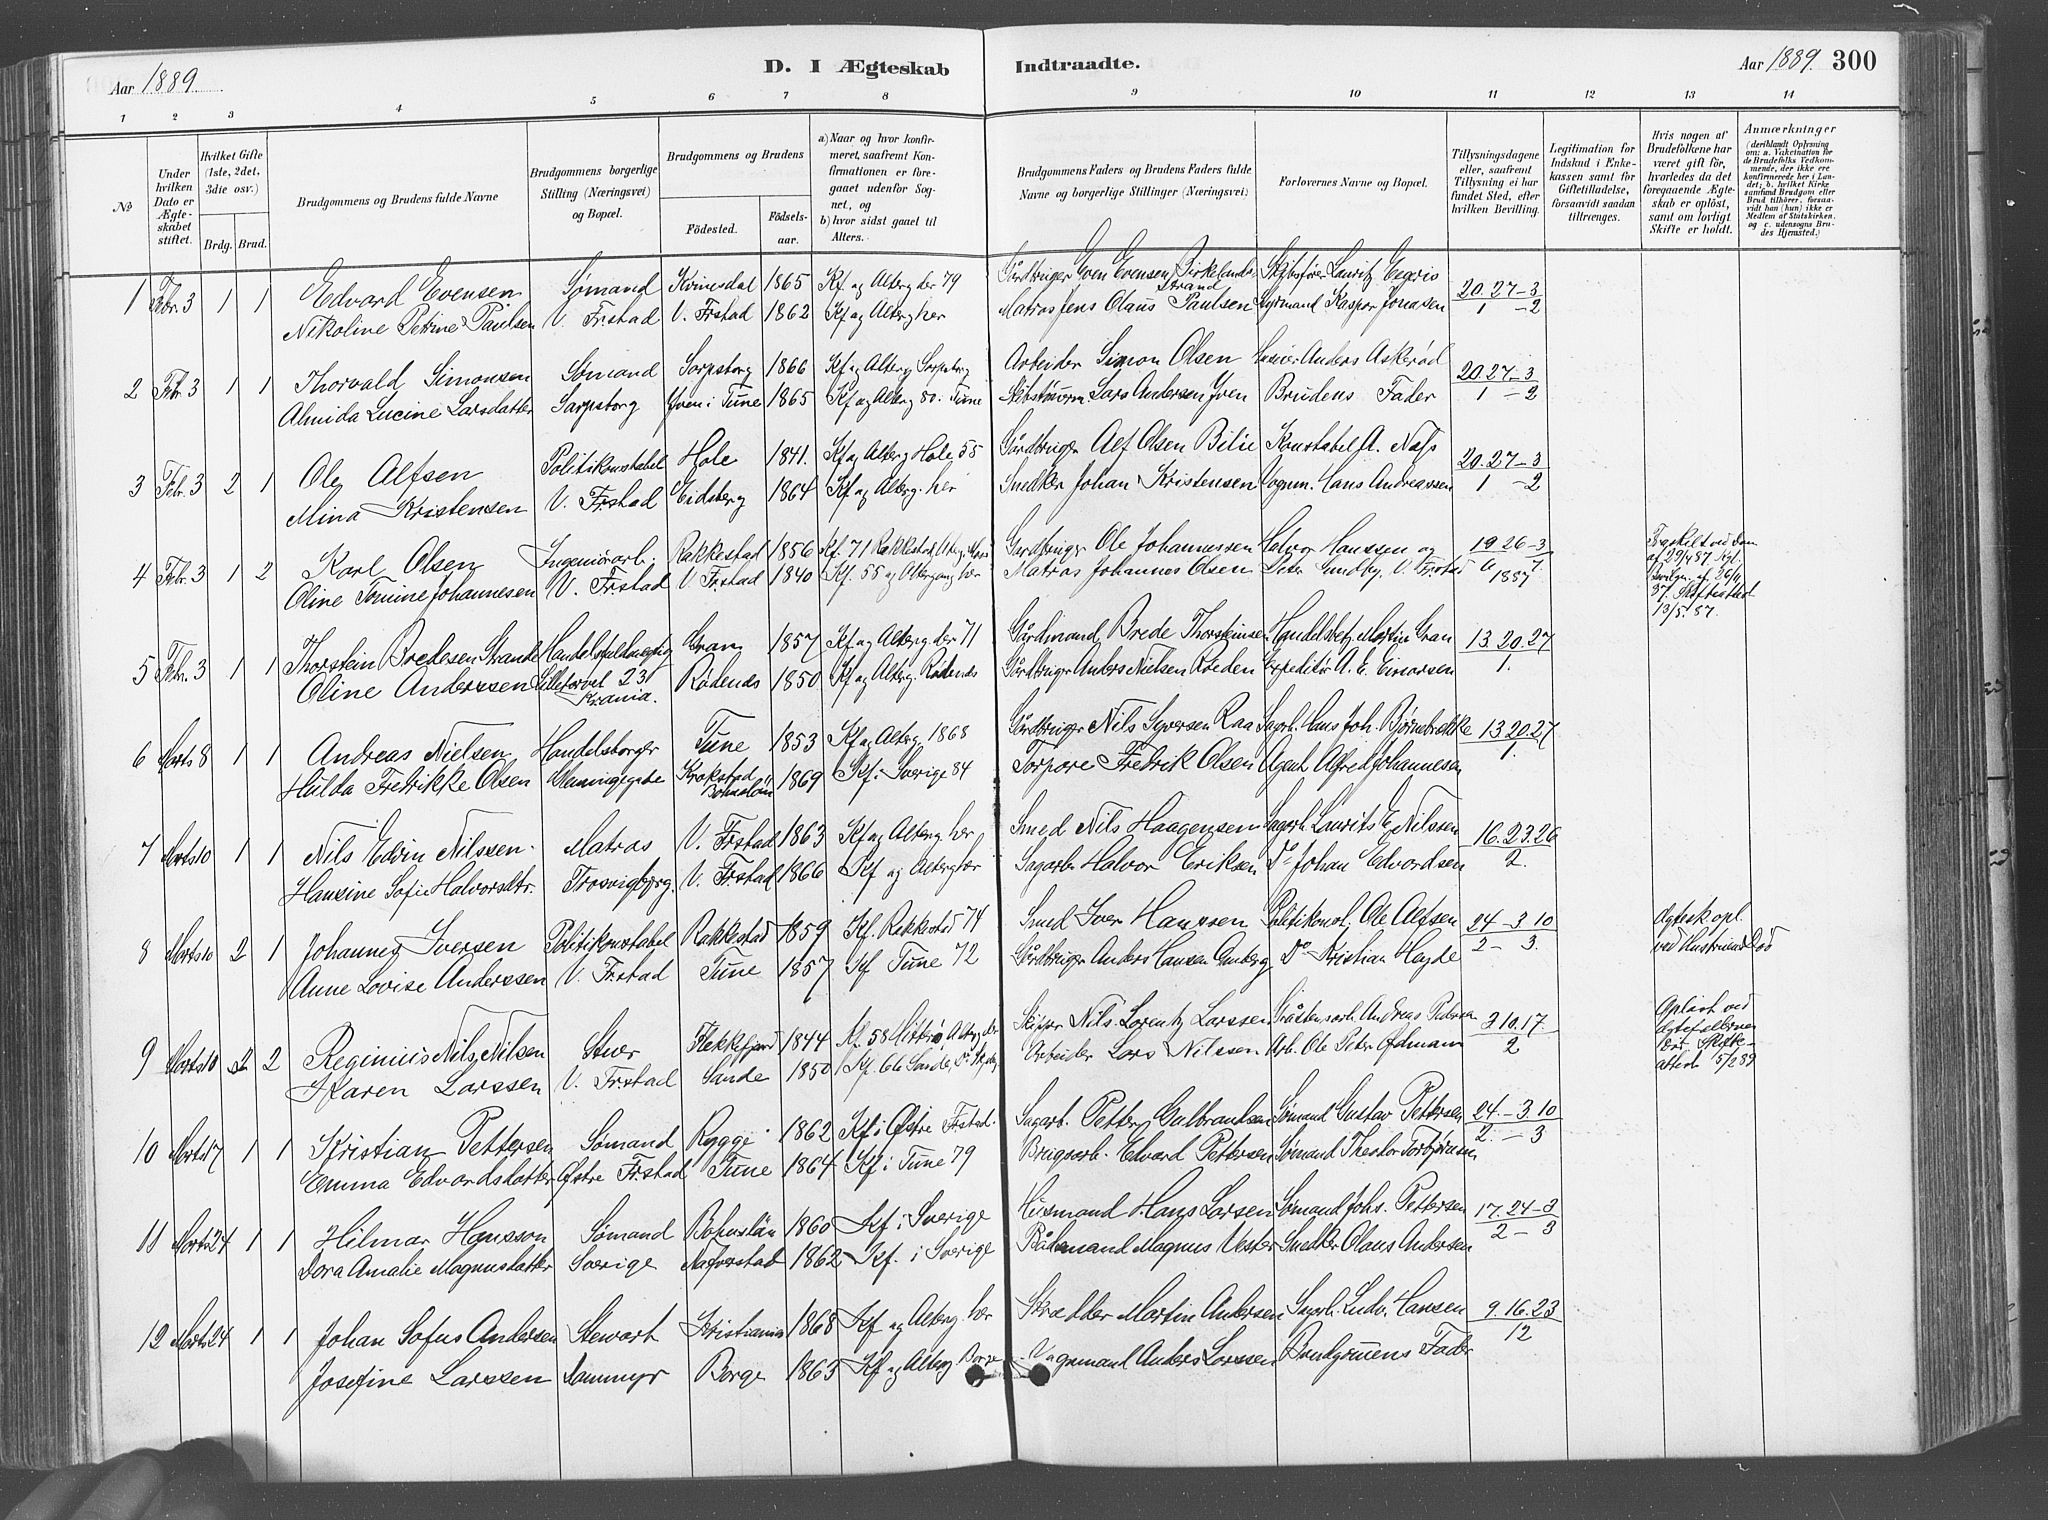 Aar 1889.
D. I Ægteskab
Indtraadte.
Aar 1889. 300
1 2 3 4 5 6 7 8 9 10 11 12 13 14
№
Under hvilken Dato er Ægteskabet stiftet.
Hvilket Gifte (1ste, 2det, 3die osv.)
Brdg. Brud.
Brudgommens og Brudens fulde Navne
Brudgommens borgerlige Stilling (Næringsvei) og Bopæl.
Brudgommens og Brudens
Fødested.
Fødselsaar.
a) Naar og hvor konfirmeret, saafremt Konfirmationen er foregaaet udenfor Sognet, og
b) hvor sidst gaaet til Alters.
Brudgommens Faders og Brudens Faders fulde Navne og borgerlige Stillinger (Næringsvei)
Forlovernes Navne og Bopæl.
Tillysningsdagene eller, saafremt Tillysning ei har fundet Sted, efter hvilken Bevilling.
Legitimation for Indskud i Enkekassen samt for Giftetilladelse, forsaavidt saadan tiltrænges.
Hvis nogen af Brudefolkene har været gift før, hvorledes da det foregaaende Ægteskab er opløst, samt om lovligt Skifte er holdt.
Anmærkninger
(deriblandt Oplysning om: a. Vakcination for de Brudefolks Vedkommende, der ikke ere konfirmerede her i Landet; b. hvilket Kirkesamfund Brudgom eller Brud tilhører, forsaavidt han (hun) ikke er Medlem af Statskirken. og c. udensogns Brudes Hjemsted.)
1 Febr. 3 1 1 Edvard Evensen Sømand Kvinesdal 1865 Kf. og Altergder 79 Gårdbruger Even Evensen Birkelands- Skibsfører Lauritz Eegvis 20. 27 – 3
strand
Nikoline Petrine Paulsen V. Frstad V. Frstad 1862 Kf og Alterg her Matros Jens Olaus Paulsen Styrmand Kasper Jonasen 1 – 2
2 Febr 3 1 1 Thorvald Simonsen Sømand Sarpsborg 1866 Kf og Alterg Sarpsborg Arbeider Simon Olsen Anders Askerød 20. 27 – 3
Almida Lucine Larsdatter Sarpsborg Yven i Tune 1865 Kf og Alterg 80. Tune Skibstømm. Lars Andersen Yven Brudens Fader 1 – 2
3 Febr. 3 2 1 Ole Alfsen Politikonstabel Hole 1841. Kf og Alterg Hole 55 Gårdbruger Alf Olsen Bilie Konstabel A. Næss 20. 27 – 3
Mina Kristensen V. Frstad Eidsberg 1864 Kf og Alterg. her Snedker Johan Kristensen Vognm. Hans Andreassen 1 – 2
4 Febr. 3 1 2 Karl Olsen Ingeniørarb. Rakkestad 1856 Kf. 71 Rakkestad, Alterg. Gårdbruger Ole Johannessen Halvor Hanssen og 19 26 – 3
Oline Tomine Johannesen V. Frstad V. Frstad 1840 Kf. 55 og Altergang her Matros Johannes Olsen Peter Gundby, V. Frstad 1887
Fraskilt ved Dom
af 29/4 87. Kgl.
Bevilgn. af 26/11
87. Skifteattest
13/5. 87.
5 Febr. 3 1 1 Thorstein Bredesen Strande Handelsfuldmægtig Gran 1857 Kf og Alterg. der 71 Gårdmand Brede Thorsteinsen Handelsbetj. Martin Gran 13. 20. 27
Oline Anderssen Lilletorvet 23 Krania. Rødenæs 1850 Kf og Alterg. Rødenæs Gårdbrugr Anders Nielsen Røeden Expeditør A. E. Einarsen 1.
6 Marts 8 1 1 Andreas Nielsen Handelsborger Tune 1853 Kf og Alterg 1868 Gårdbruger Nils Syversen Raa Sagarb. Hans Joh. Bjørnebekke 13. 20. 27
Hulda Fredrikke Olsen Krokstad Bohuslän 1869 Kf. i Sverige 84 Torpare Fredrik Olsen Agent Alfred Johannesen 1.
7 Marts 10 1 1 Nils Edvin Nilssen. Matros V. Frstad 1863 Kf og Alterg. her Smed Nils Haagensen Sagarb. Laurits E. Nilssen 16. 23. 26
Hansine Sofie Halvorsdtr. Trosvigbjerg. V. Frstad 1866 Kf og Alterg her Sagarb. Halvor Eriksen Do Johan Edvardsen 2.
8 Marts 10 2 1 Johannes Iversen Politikonstabel Rakkestad 1859 Kf. Rakkestad 74 Smed Iver Hanssen Politikonst. Ole Alfsen 24 – 3 10
Anne Lovise Anderssen V. Frstad Tune 1857 Kf Tune 72 Gårdbruger Anders Hansen Amberg Do Kristian Høyde 2 – 3.
Ægtesk. opl.
ved Hustruens Død
9 Marts 10 2 2 Reginius Nils Nilsen Stuer Flekkefjord 1844 Kf. 58 Hitterø, Alterg. der Skipper Nils Lorentz Larssen Gråstensarb. Andreas Pedersen 3. 10. 17.
Karen Larssen V. Frstad Sande 1850 Kf. 66 Sande, Arbeider Lars Nilssen Arb. Ole Peter Ødmann 2
Opløst ved
Ægtefællernes
Død. Skifte-
attest 15/2 89
10 Marts 17 1 1 Kristian Pettersen Sømand Rygge 1862 Kf i Østre Frstad. Sagarb. Petter Gulbrandsen Sømand Gustav Pettersen 24. – 3 10
Emma Edvardsdatter Østre Frstad Tune 1864 Kf. i Tune 79 Brugsarb. Edvard Pettersen Sømand Theodor Torbjørnsen 2. – 3
11 Marts 24 1 1 Hilmar Hansson Sømand Bohuslän 1860 Kf. i Sverige Husmand Hans Larsen Sømand Johs. Pettersen 17. 24 – 3
Dora Amalie Magnusdatter Sverige Nafverstad 1862 Kf. i Sverige Bådsmand Magnus Vester Snedker Olaus Andersen 2 – 3
12 Marts 24 1 1 Johan Sofus Andersen Stewart Kristiania 1868 Kf og Alterg. her Skrædder Martin Andersen Sagarb. Ludv. Hansen 9. 16. 23
Josefine Larssen Lammyr Borge 1863 Kf og Alterg Borge Vognmand Anders Larssen Brudgommens Fader 12